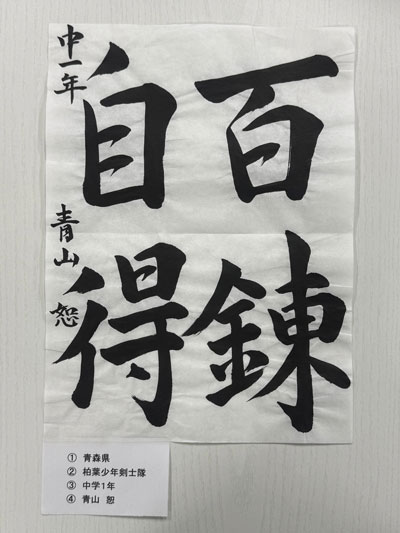 百錬
自得
中一年 青山 恕
① 青森県
② 柏葉少年剣士隊
③ 中学1年
④ 青山 恕